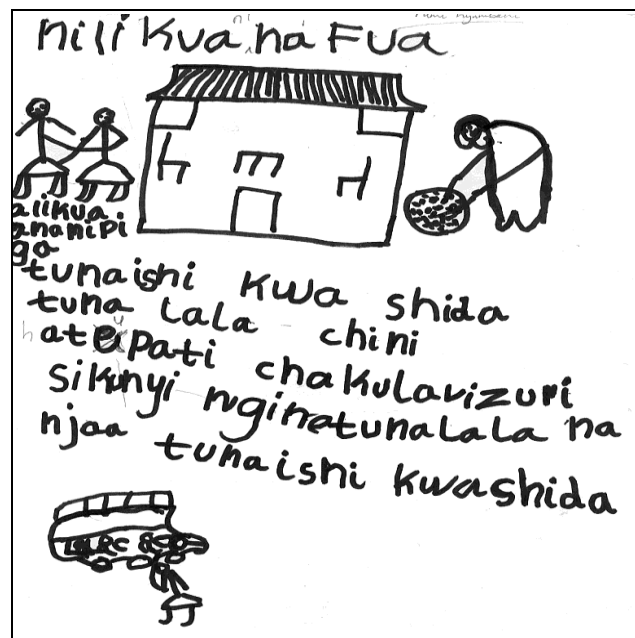 nilikua na Fua
ni
alikua
ananipi
ga
tunaishi kwa shida
tuna lala chini
hatupati chakulavizuri
sikunyi nginetunalala na
njaa tunaishi kwashida